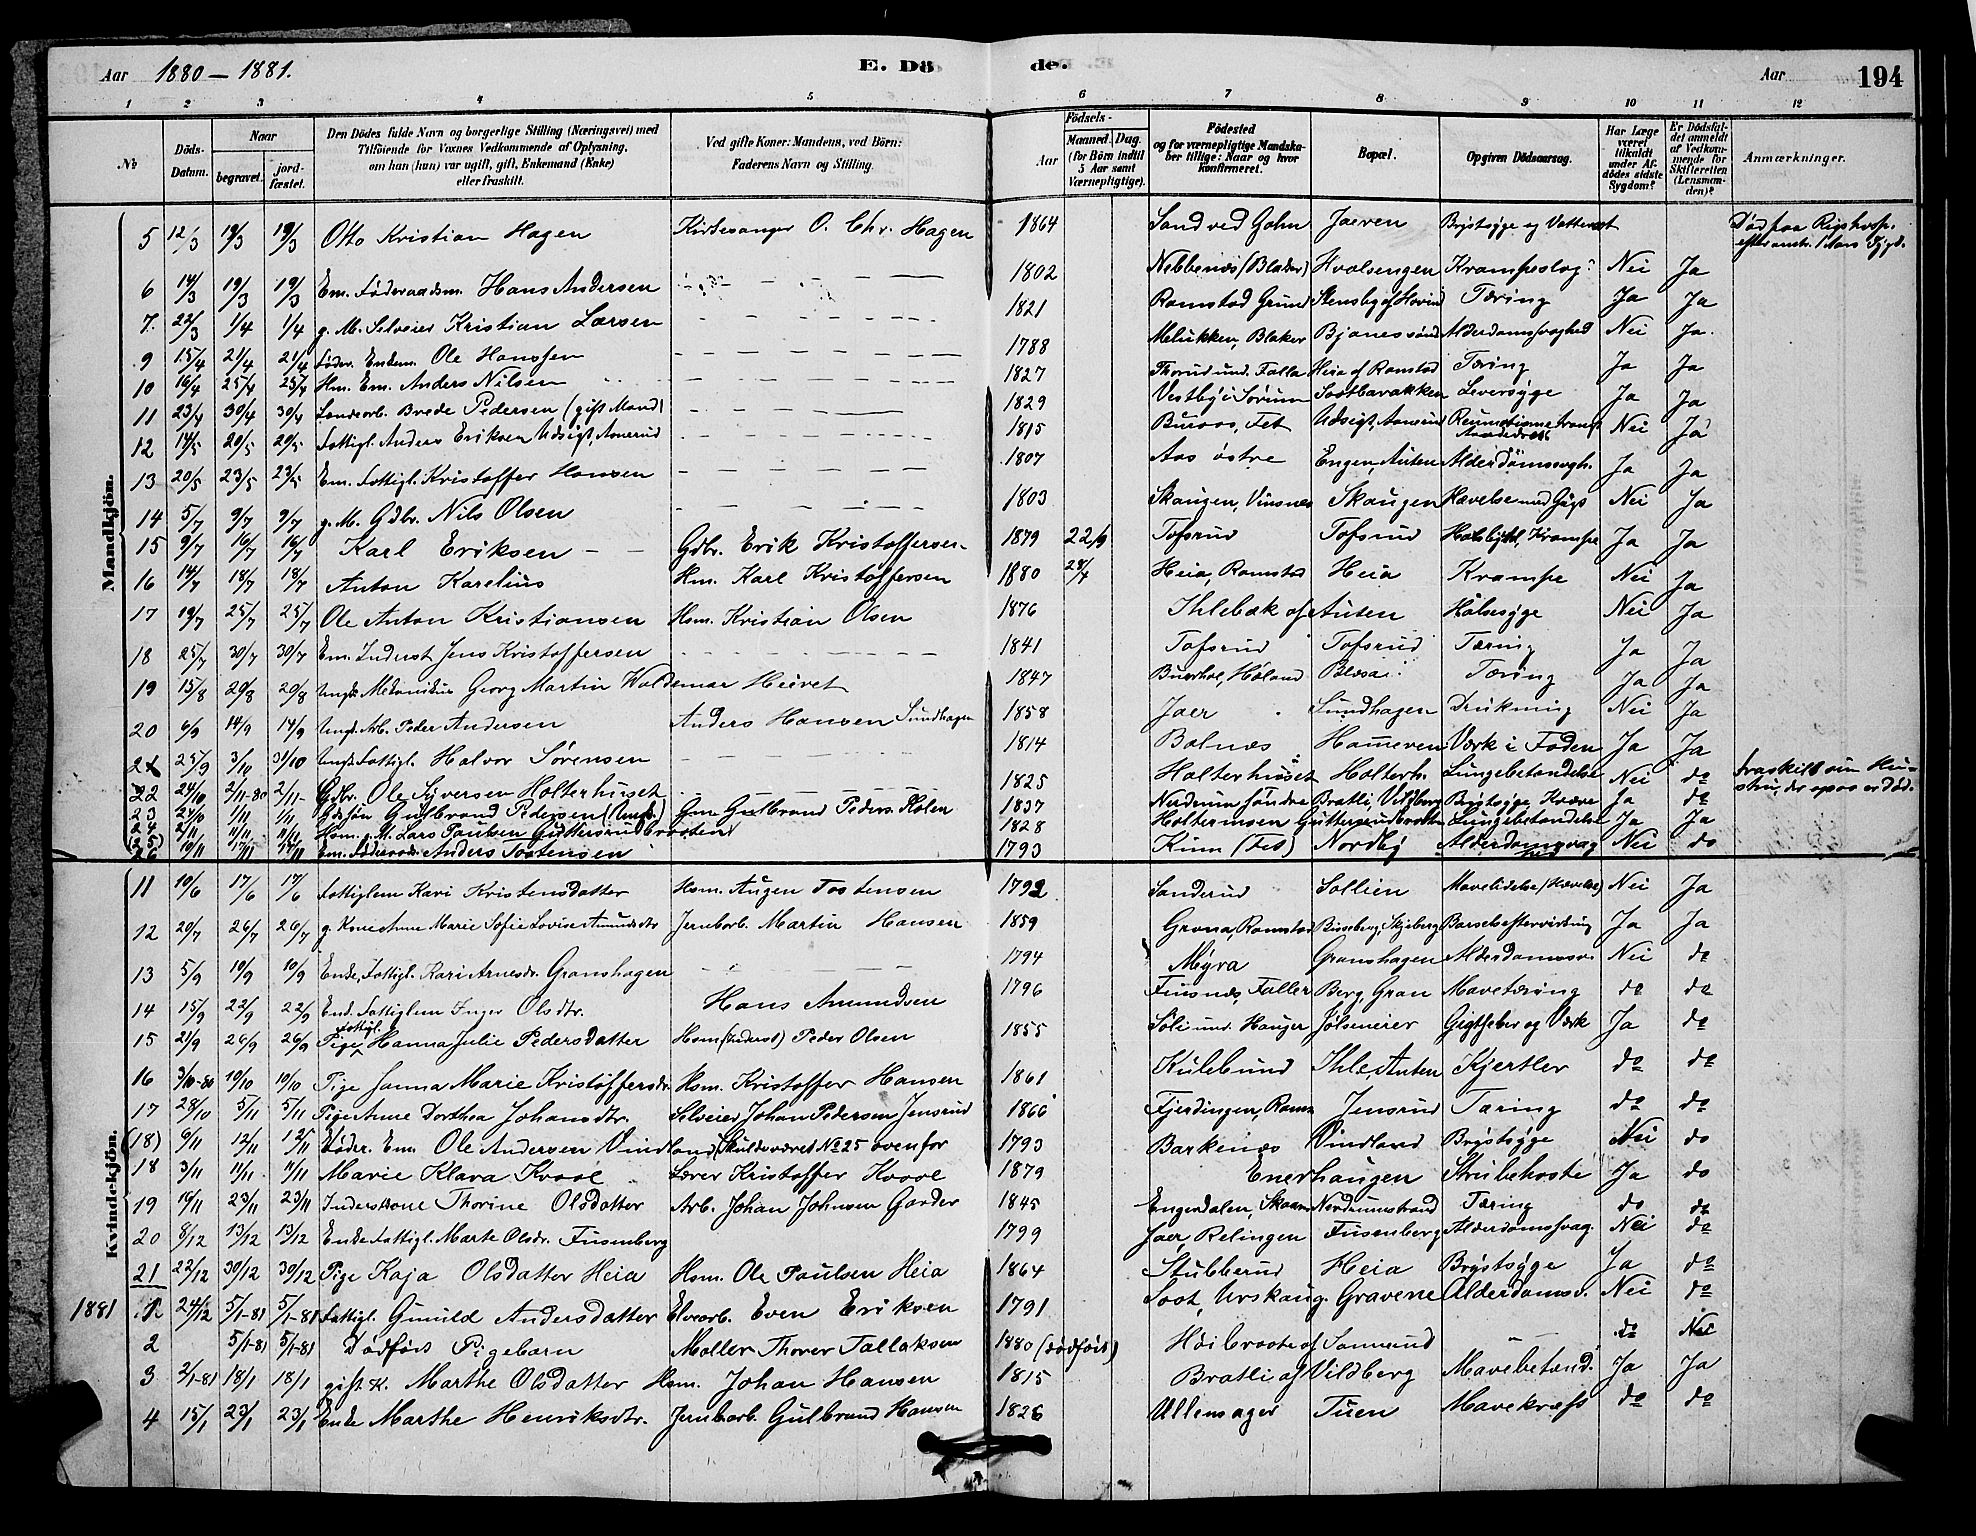 Aar 1880 – 1881. E. Dö de. Aar 194
1 2 3 4 5 6 7 8 9 10 11 12
№ Döds-Datum. Naar begravet. jord-fæstet. Den Dödes fulde Navn og borgerlige Stilling (Næringsvei) med Tilföiende for Voxnes Vedkommende af Oplysning, om han (hun) var ugift, gift, Enkemand (Enke) eller fraskilt. Ved gifte Koner: Mandens, ved Börn: Faderens Navn og Stilling. Födsels- Aar Maaned. Dag. (for Börn indtil 5 Aar samt Værnepligtige). Födested og for værnepligtige Mandskaber tillige: Naar og hvor konfirmeret. Bopæl. Opgiven Dödsaarsag. Har Læge været tilkaldt under Afdödes sidste Sygdom? Er Dödsfaldet anmeldt af Vedkommende for Skifteretten (Lensmanden)? Anmærkninger.
Mandkjön.
5 12/3 19/3 19/3 Otto Kristian Hagen Kirkesanger O. Chr. Hagen 1864 Sand ved Gahn Jaeren Brystsyge og Vattersot Død paa Rigshosp.
6 14/3 19/3 19/3 Em. Føderaadsm. Hans Andersen 1802 Nebbenæs (Blaker) Hvalsengen Krampeslag Nei Ja
7. 22/3 1/4 1/4 g. M. Selveier Kristian Larsen 1821 Ramstad Grund Stensby af Hovind Tæring Ja Ja
9 15/4 21/4 21/4 Føder. Enkem. Ole Hansen 1788 Melukken, Blaker Bjanessønd Alderdomssvaghed Nei Ja.
10 16/4 25/4 25/4 Hm. Em. Anders Nilsen 1827 Thorud und. Falla Heia af Ramstad Tæring Ja Ja
11 23/4 30/4 30/4 Landarb. Brede Pedersen (gift Mand) 1829 Vestby i Sørum Sootbakken Leversyge Ja Ja
12 14/5 20/5 20/5 Fattigl. Anders Eriksen Udsigt, Aamerud 1815 Buraas, Fet Udsigt, Aamerud Nei Ja
13 20/5 23/5 23/5 Em. Fattigl. Kristoffer Hansen 1807 Aas østre Engen, Auten Alderdomssvgh. Ja Ja
14 5/7 9/7 9/7 g. M. Gdbr. Nils Olsen 1803 Skaugen, Vinsnes Skaugen Hævelse med Gigt Nei Ja
15 9/7 16/7 16/7 Karl Eriksen Gdbr. Erik Kristoffersen 1879 22/6 Tofsrud Tofsrud Krampe Ja Ja
16 14/7 18/7 18/7 Anton Karelius Hm. Karl Kristoffersen 1880 28/4 Heia, Ramstad Heia Krampe Nei Ja
17 19/7 25/7 25/7 Ole Anton Kristiansen Hsm. Kristian Olsen 1876 Ihlebæk af Auten Halsesyge Nei Ja
18 25/7 30/7 30/7 Em. Inderst Jens Kristoffersen 1841 Tofsrud Tofsrud Tæring Ja Ja
19 15/8 20/8 20/8 Ungk. Mekanikus Georg Martin Waldemar Hievet 1847 Buerhol, Høland Blæsa Tæring Ja Ja
20 6/9 14/9 14/9 Ungk. Arb. Peder Andersen Anders Hansen Sundhagen 1858 Jaer Sundhagen Drukning Nei Ja
21 25/9 3/10 31/10 Ungk. Fattigl. Halvor Sørensen 1814 Bolnæs Hameren Værk i Foden Ja Ja
22 24/10 2/11-80 2/11 Gdbr. Ole Syversen Holterhuset 1825 Holterhuset Holterh. Lungebetændelse Nei do fraskilt sin Hustru, der ogsaa er død.
23 1/11 1/11 Gdsøn Gulbrand Pedersen (Ungk.) Gm Gulbrand Peders. Holen 1837 Nerdrum søndre Bratli, Vildberg Brystsyge Ja do
24 2/11 11/11 11/11 Hsm. g. M. Lars Paulsen Guttersrudbraaten 1828 Holtermoen Guttersrudbraaten Lungebetændelse Ja Ja
(25)
26 10/11 17/11 17/11 Em. Føderaad. Anders Tostensen 1793 Kinn (Fet) Nordby Alderdomssvaghed Nei do
Kvindekjön.
11 10/6 17/6 17/6 Fattiglem Kari Kristensdatter Hsm. Augen Tostensen 1792 Sanderud Sollien Mavelidelse (Hævelse) Nei Ja
12 20/7 26/7 26/7 g. Kone Anne Marie Sofie Lovise Amundsdtr Jernbarb. Martin Hansen 1859 Grona, Ramstad Bisseberg, Skjeberg Barselseftervirkning Ja Ja
13 5/9 10/9 10/9 Enke, Fattigl. Kari Arnesdr. Granshagen 1794 Myra Granshagen Alderdomssv. Nei do
14 15/9 22/9 22/9 Enk. Fattiglem Inger Olsdtr. Hans Amundsen 1796 Fusnæs, Faller Berg, Gran Mavetæring do do
15 21/9 26/9 26/9 Fattigl. Pige Hanna Julie Pedersdatter Hsm (Inderst) Peder Olsen 1855 Soli und. Hauger Jølseneier Gigtfeber og Værk Ja do
16 3/10-80 10/10 10/10 Pige Janna Marie Kristoffersdr. Hsm. Kristoffer Hansen 1861 Kulebund Ihle, Auten Kjertler do do
17 28/10 5/11 5/11 Pige Anne Dorthea Johansdtr. Selveier Johan Pedersen Jensrud 1866 Fjerdingen, Rams Jensrud Tæring do do
(18) 6/11 12/11 12/11 Føder. Em. Ole Andersen Vindland (Skulde været № 25 ovenfor 1793 Barkenæs Vindland Brystsyge Nei do
18 3/11 11/11 11/11 Marie Klara Kvool Lærer Kristoffer Kvool 1879 Enerhaugen Strubehoste Ja do
19 19/11 23/11 23/11 Inderstkone Thorine Olsdatter Arb. Johan Johnsen Garder 1845 Engerdalen, Skaane Nerdrumstrand Tæring do do
20 8/12 13/12 13/12 Enke Fattigl. Marte Olsdr. Fusenberg 1799 Jaer, Relingen Fusenberg Alderdomssvag. Nei do
21 22/12 30/12 30/12 Pige Kaja Olsdatter Heia Hsm. Ole Paulsen Heia 1864 Stubberud Heia Brystsyge Ja do
1881 1 24/12 5/1-81 5/1-81 Fattigl. Gunild Andersdatter Elvearb. Even Eriksen 1791 Soot, Urskaug. Gravene Alderdomssv. Nei do
2 5/1-81 5/1-81 Dødfødt Pigebarn Møller Thorer Tallaksen 1880 (dødfødt) Høibraate af Samrud do Nei
3 2/1-81 18/1 18/1 gift. K. Marthe Olsdatter Hsm. Johan Hansen 1815 Bratli af Vildberg Mavebetænd. Ja Ja
4 15/1 23/1 23/1 Enke Marthe Henriksdtr. Jernbarb. Gulbrand Hansen 1826 Ullensager Tuen Mavekræft do do